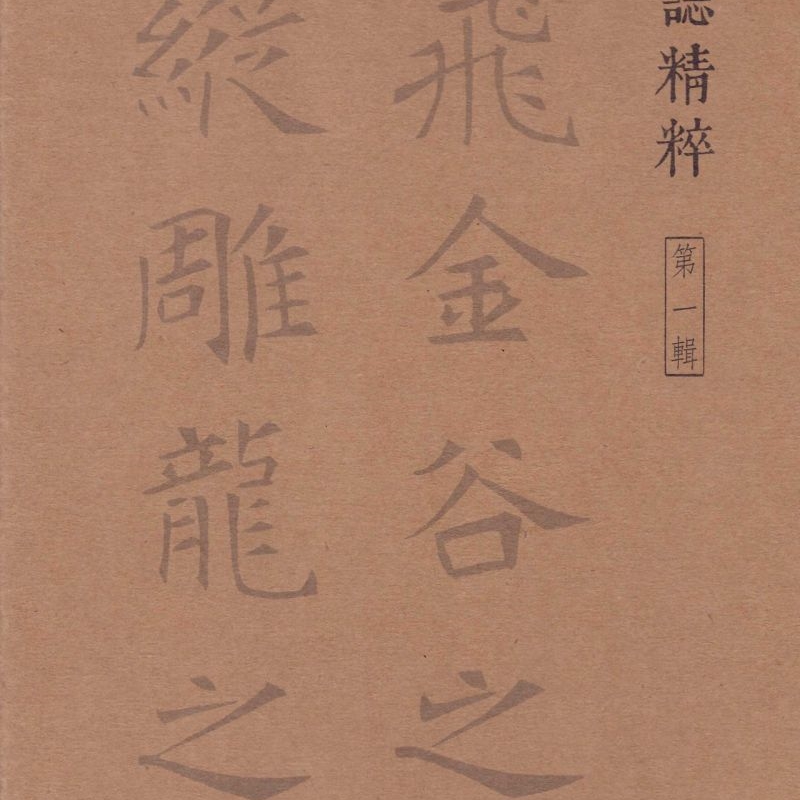 誌精粹
第一輯
飛金谷之
縱雕龍之